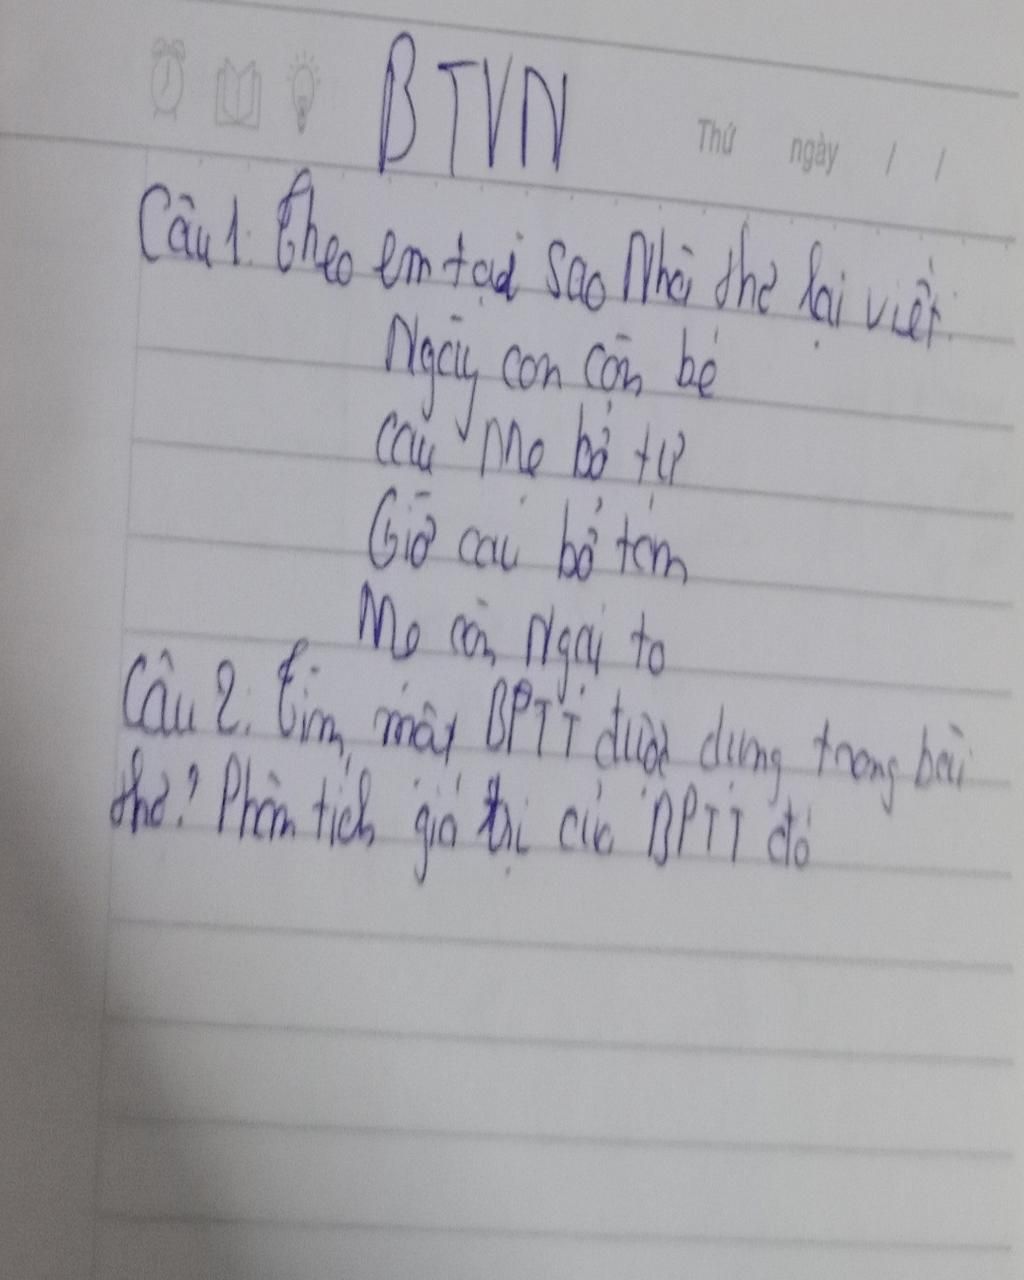 BTVN
Thứ ngày / /
Câu 1. Theo em tại sao Nhà thơ lại viết:
Ngày con còn bé
Cau mẹ bổ tư
Giờ cau bổ tám
Mẹ còn Ngại to
Câu 2. Tìm mấy BPTT được dùng trong bài
thơ? Phân tích giá trị các BPTT đó